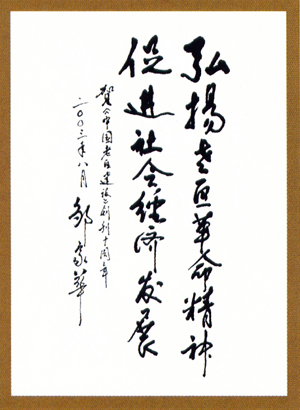 弘揚老区革命精神
促進社会經济发展
贺《中国老区建设》创刊十周年
二〇〇三年八月
邹家华